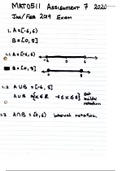 MAT0511 ASSIGNMENT 7 2020
JAN/FEB 2019 EXAM
1. A=[-6,6)
B=[0,8]
1.1. A=[-6,6)
B=[0,8]
1.2 A∪B = [-6,8]
A∪B
set
builder
notation.
1.3 A∩B = [0,6) interval notation.